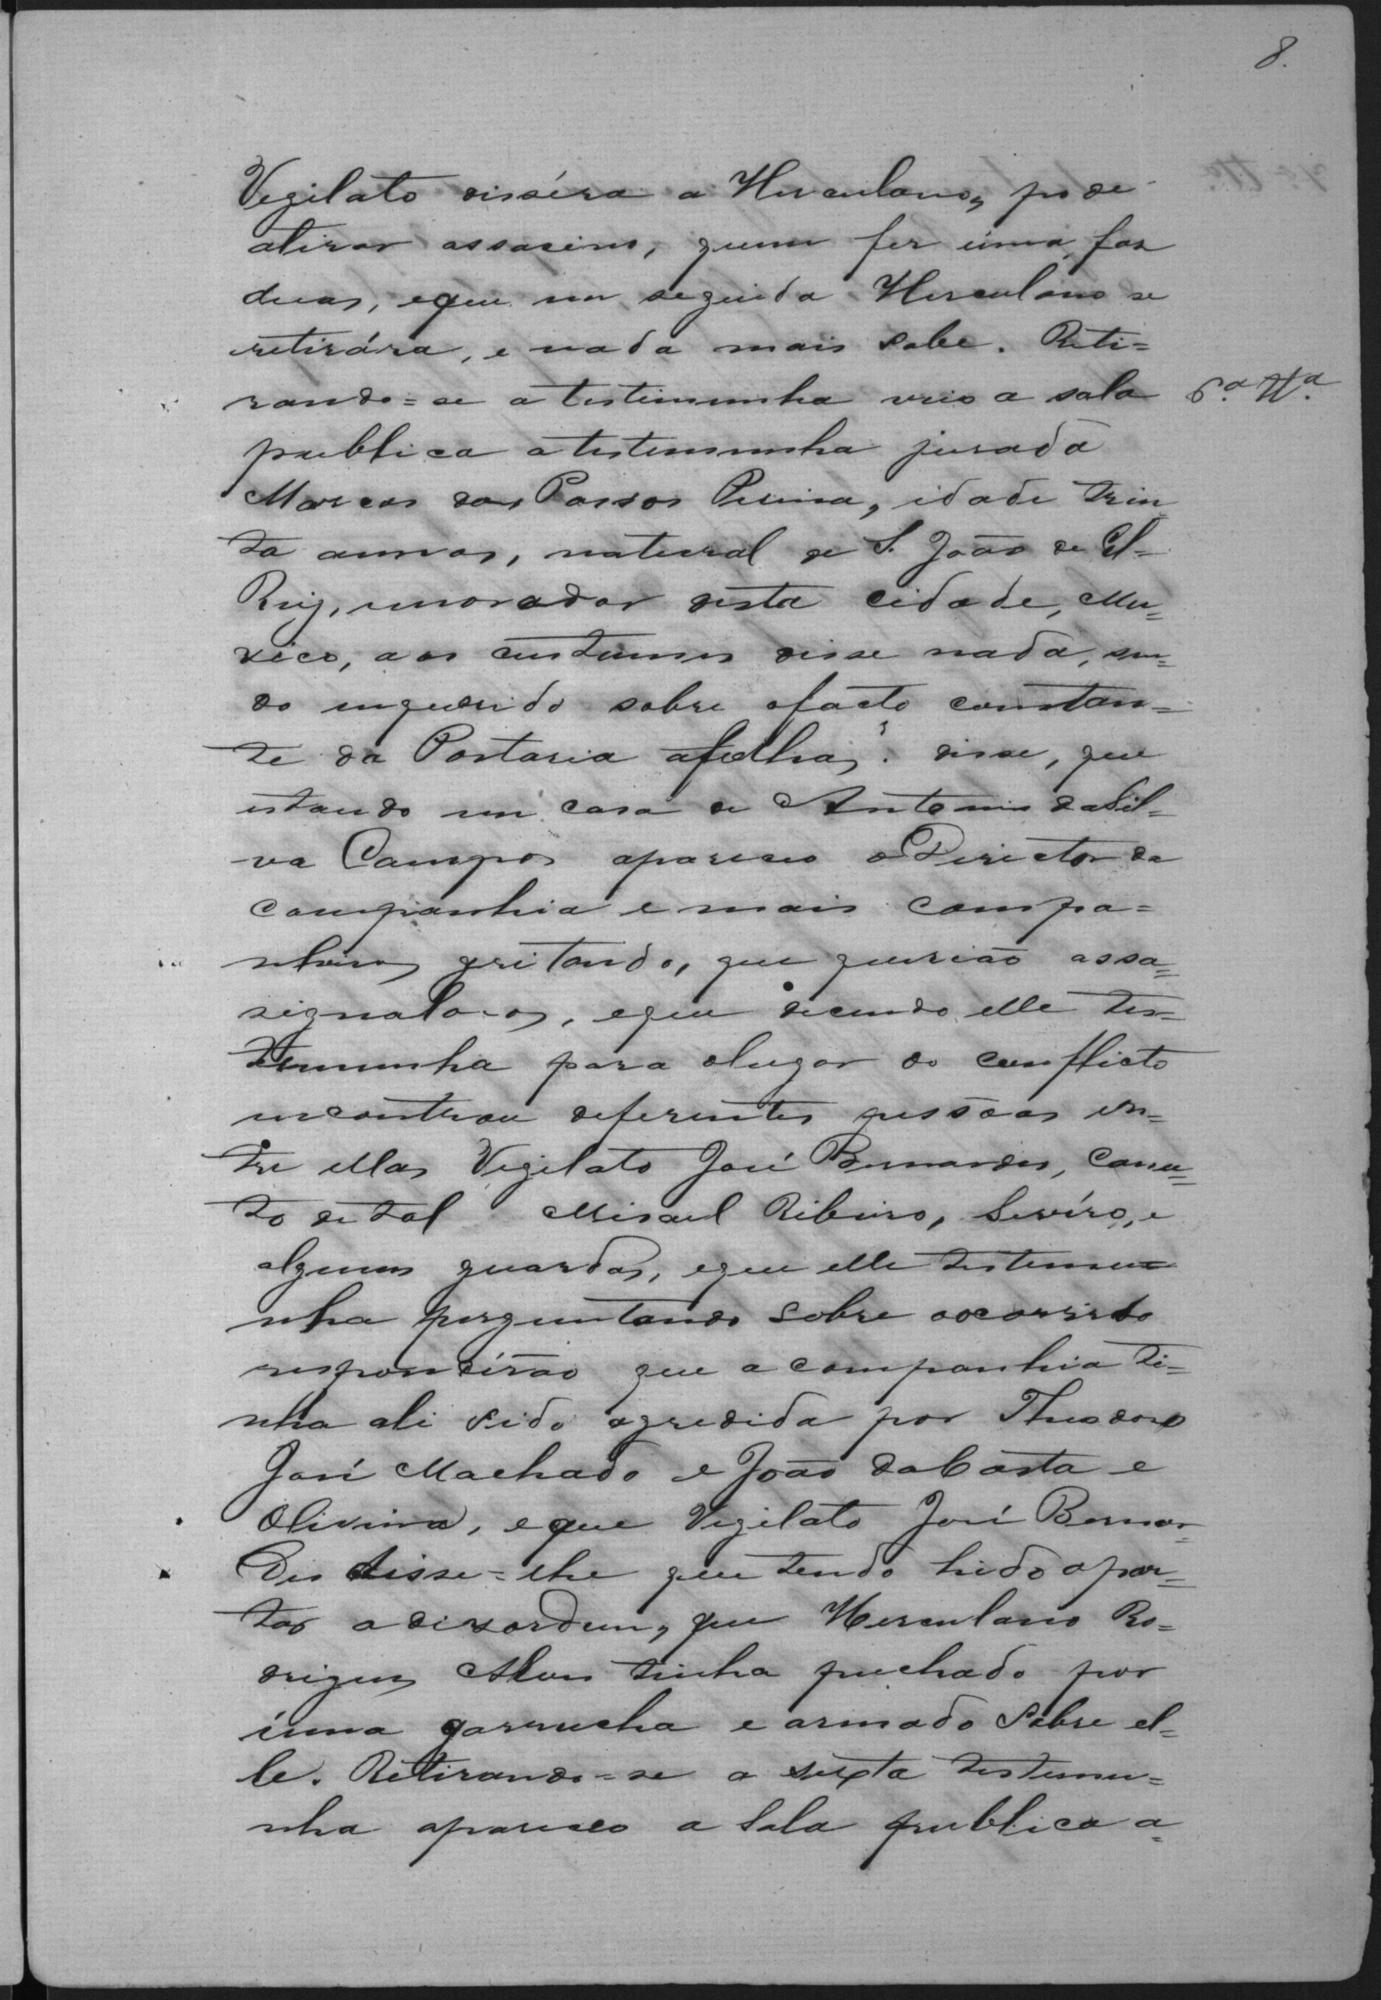 8.
Vegilato disséra a Herculano, pode
atirar assacino, quem fes úma, fas
duas, eque em seguida Herculano se
retirára, e nada mais sabe. Reti=
rando=se a testimunha veio a sala
6.ª Tª.
publica a testemunha jurada
Marcos dos Passos Pereira, idade trin=
ta annos, natural de S. João de El-
Rey, morador desta cidade, Mu=
zico, aos custumes disse nada, sen=
do enquerido sobre ofacto constan=
te da Portaria afolhas: disse, que
estando em casa de Antonio daSil=
va Campos apareceo o Director da
companhia e mais compa=
nheiros gritando, que querião assa=
signalos, eque decendo elle tes=
temunha para olugar do conflicto
encontrou deferentes pessôas en=
tre ellas Vegilato José Bernardes, Canu=
to de tal Misael Ribeiro, Sevéro, e
alguns guardas, eque elle testemu=
nha perguntando sobre oocorrido
responderão que a companhia ti=
nha ali sido agredida por Theodoro
José Machado e João daCosta e
Oliveira, eque Vegilato José Bernar=
Des disse=lhe que tendo hido apar=
tar a disordem, que Herculano Ro=
drigues Alves tinha puchado por
úma garrucha e armado sobre el=
le. Retirando=se a sexta testemu=
nha apareceo a Sala publica a=